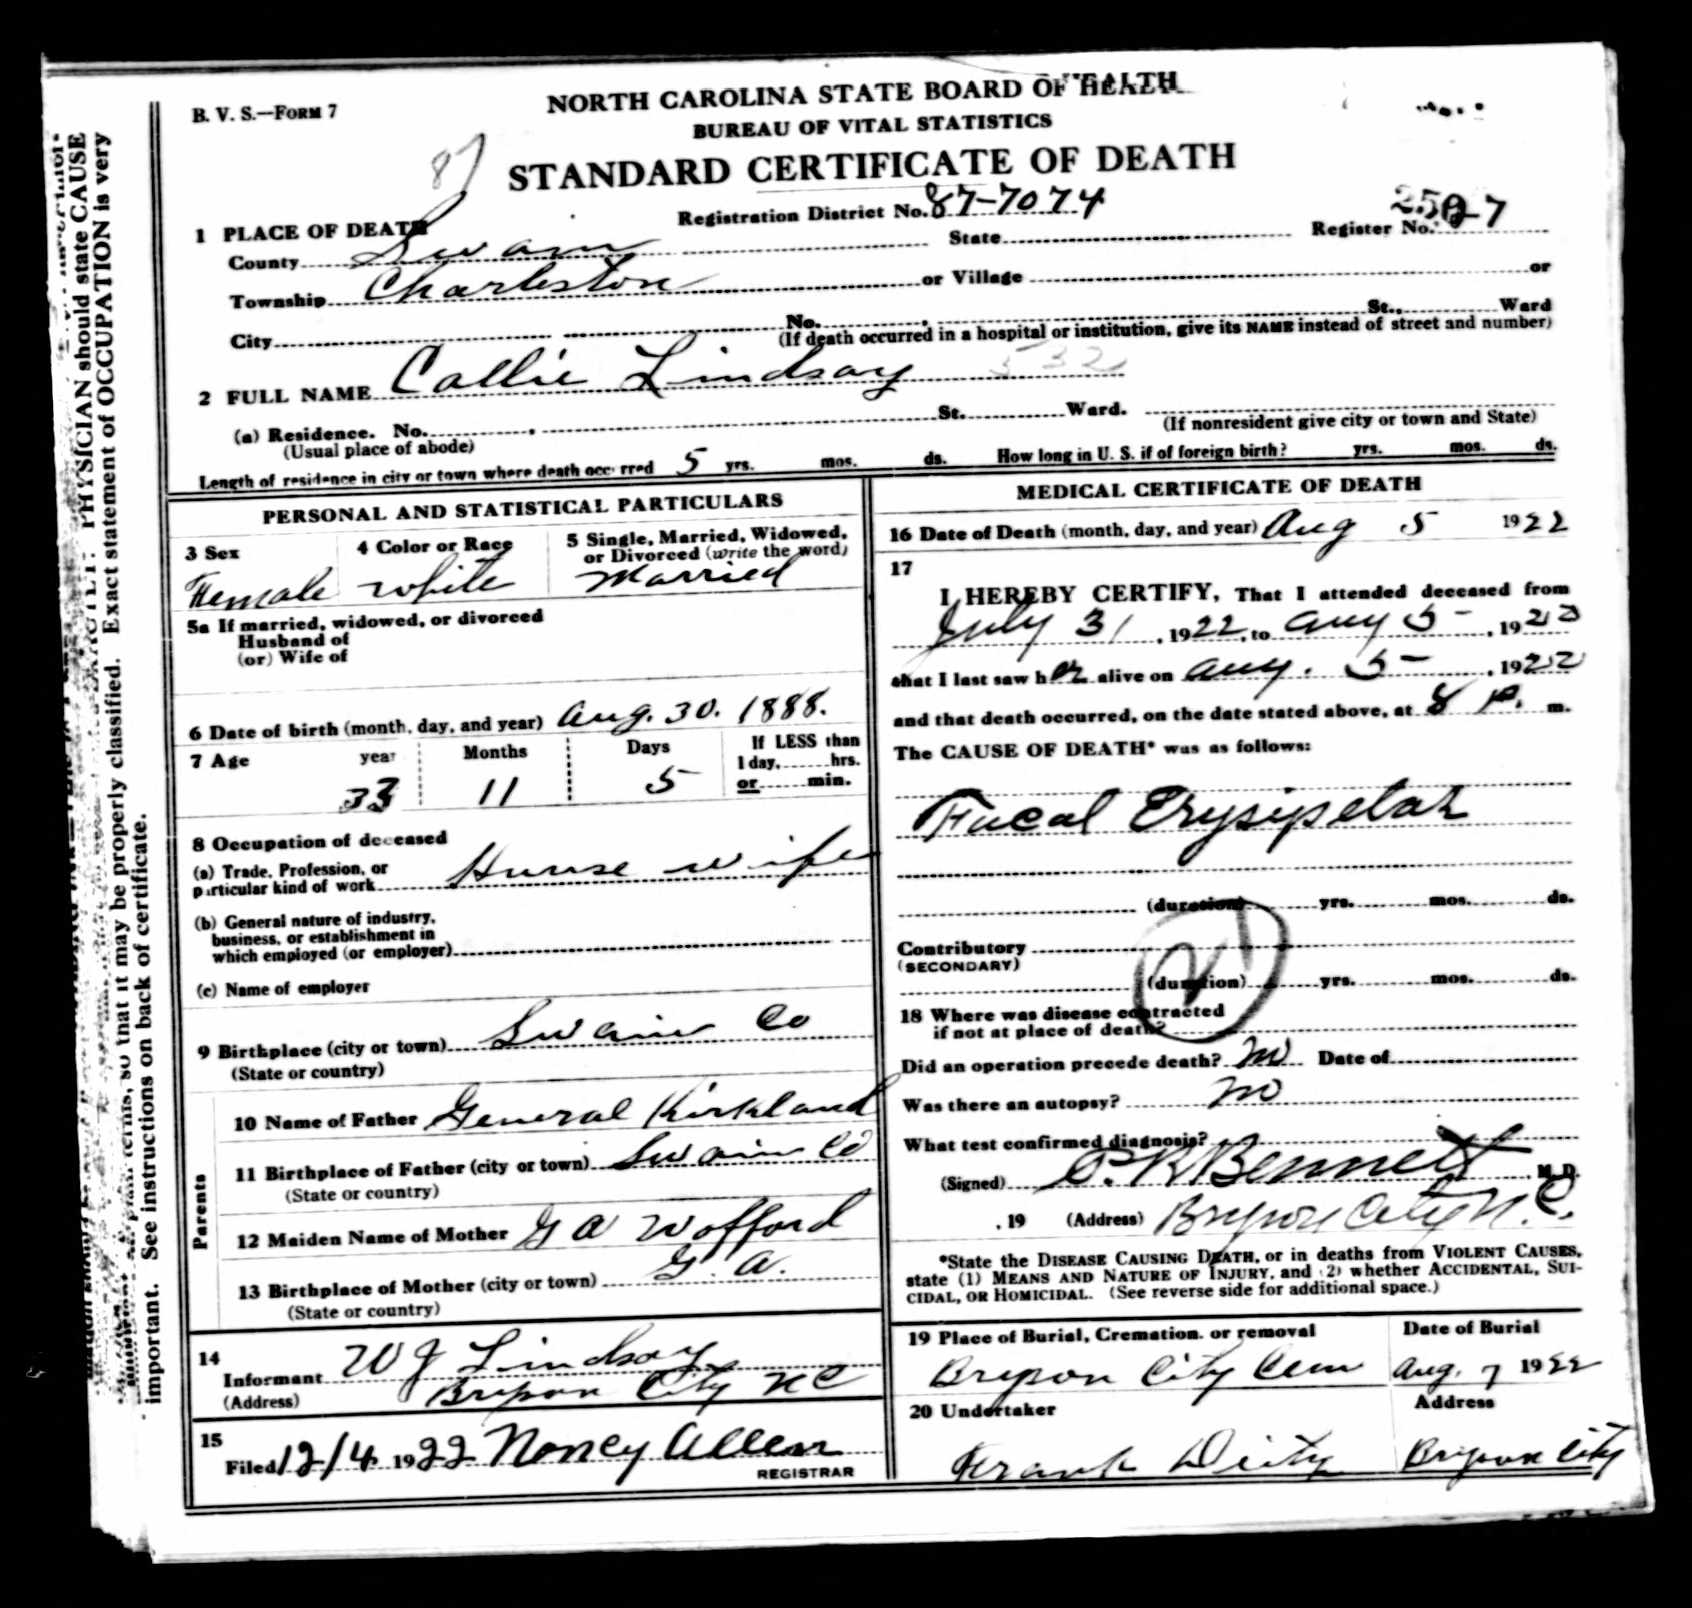 B. V. S.—FORM 7
NORTH CAROLINA STATE BOARD OF HEALTH
BUREAU OF VITAL STATISTICS
87
STANDARD CERTIFICATE OF DEATH
Registration District No. 87-7074
1 PLACE OF DEATH
Register No.
County Swain State
Township Charleston or Village or
City No. St., Ward
(If death occurred in a hospital or institution, give its NAME instead of street and number)
2 FULL NAME Callie Lindsay 532
(a) Residence. No. St. Ward.
(Usual place of abode) (If nonresident give city or town and State)
Length of residence in city or town where death occurred 5 yrs. mos. ds. How long in U. S. if of foreign birth? yrs. mos. ds.
PERSONAL AND STATISTICAL PARTICULARS
3 Sex 4 Color or Race 5 Single, Married, Widowed,
or Divorced (write the word)
Female white Married
5a If married, widowed, or divorced
Husband of
(or) Wife of
6 Date of birth (month, day, and year) Aug. 30. 1888.
7 Age year Months Days If LESS than
1 day, hrs.
33 11 5 or min.
8 Occupation of deceased
(a) Trade, Profession, or
particular kind of work House wife
(b) General nature of industry,
business, or establishment in
which employed (or employer)
(c) Name of employer
9 Birthplace (city or town) Swain Co
(State or country)
Parents
10 Name of Father General Kirkland
11 Birthplace of Father (city or town) Swain Co
(State or country)
12 Maiden Name of Mother G A Wofford
13 Birthplace of Mother (city or town) G. A.
(State or country)
14
Informant W J Lindsay
(Address) Bryson City N C
15
Filed 12/4 1922 Noncy Allen
REGISTRAR
MEDICAL CERTIFICATE OF DEATH
16 Date of Death (month, day, and year) Aug 5 1922
17
I HEREBY CERTIFY, That I attended deceased from
July 31, 1922, to Aug 5-, 1922
that I last saw her alive on Aug. 5-, 1922
and that death occurred, on the date stated above, at 8 P. m.
The CAUSE OF DEATH* was as follows:
Facal Erysipelas
(duration) yrs. mos. ds.
Contributory
(SECONDARY)
21
(duration) yrs. mos. ds.
18 Where was disease contracted
if not at place of death?
Did an operation precede death? no Date of
Was there an autopsy? no
What test confirmed diagnosis?
(Signed) P. R. Bennett, M. D.
, 19 (Address) Bryson City N. C.
*State the DISEASE CAUSING DEATH, or in deaths from VIOLENT CAUSES,
state (1) MEANS AND NATURE OF INJURY, and (2) whether ACCIDENTAL, SUI-
CIDAL, OR HOMICIDAL. (See reverse side for additional space.)
19 Place of Burial, Cremation, or removal Date of Burial
Bryson City Cem Aug. 7 1922
20 Undertaker Address
Frank Bryson City
PHYSICIAN should state CAUSE
Exact statement of OCCUPATION is very
so that it may be properly classified.
important. See instructions on back of certificate.